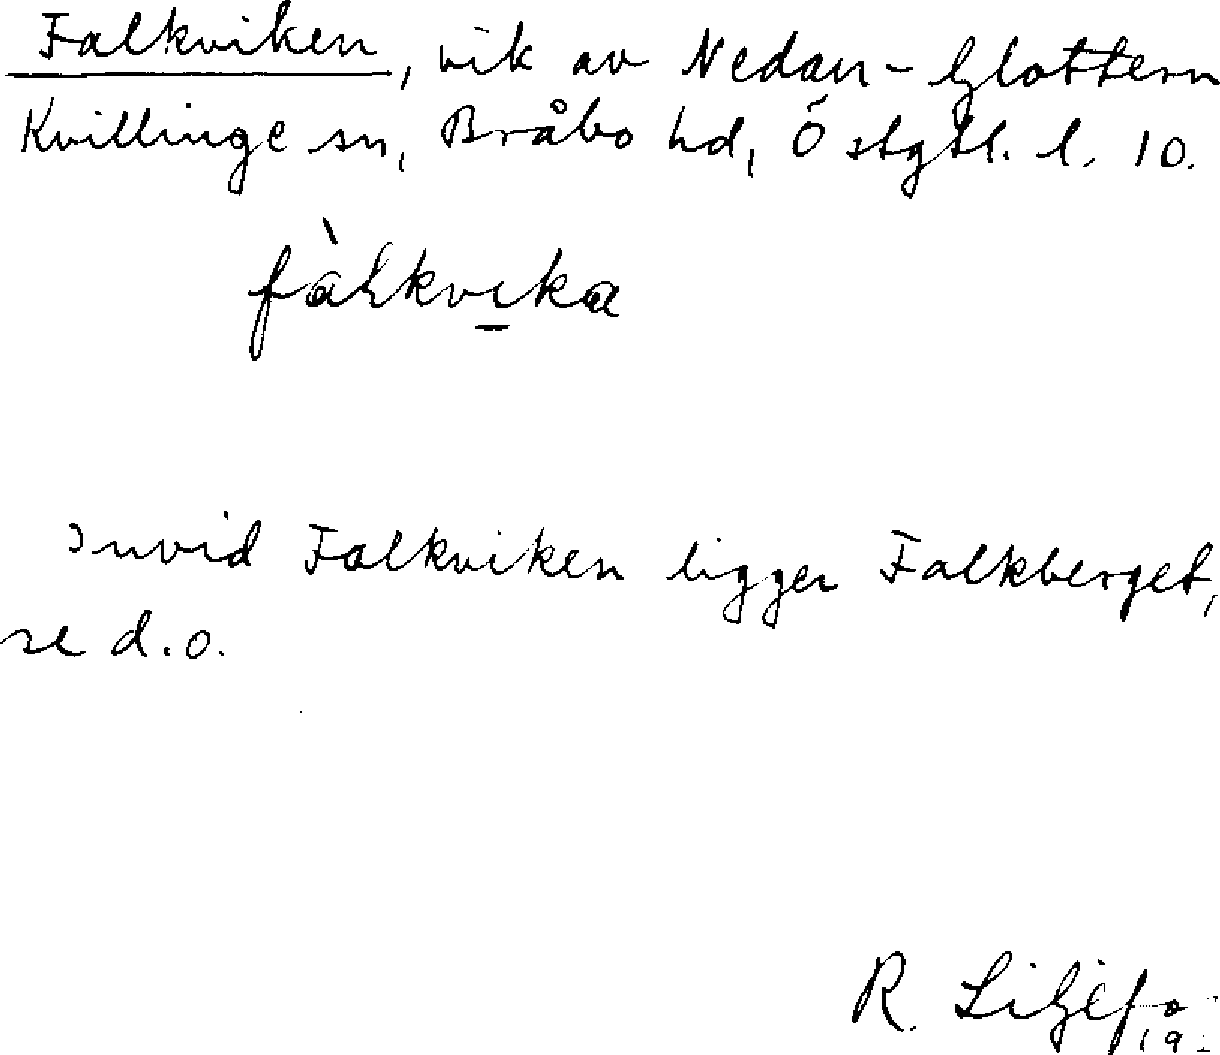 Falkviken, vik av Nedan-Glottern
Kvillinge sn, Bråbo hd, Östgtl. l. 10.
fàlkvika
Invid Falkviken ligger Falkberget,
se d.o.
R. Liljefo
19